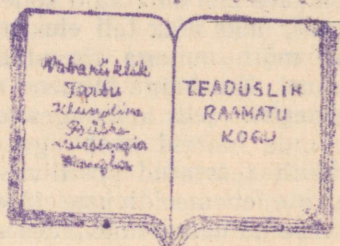 Vabariiklik
Tartu
Kliiniline
Psühho
neuroloogia
Haigla
TEADUSLIK
RAAMATU
KOGU